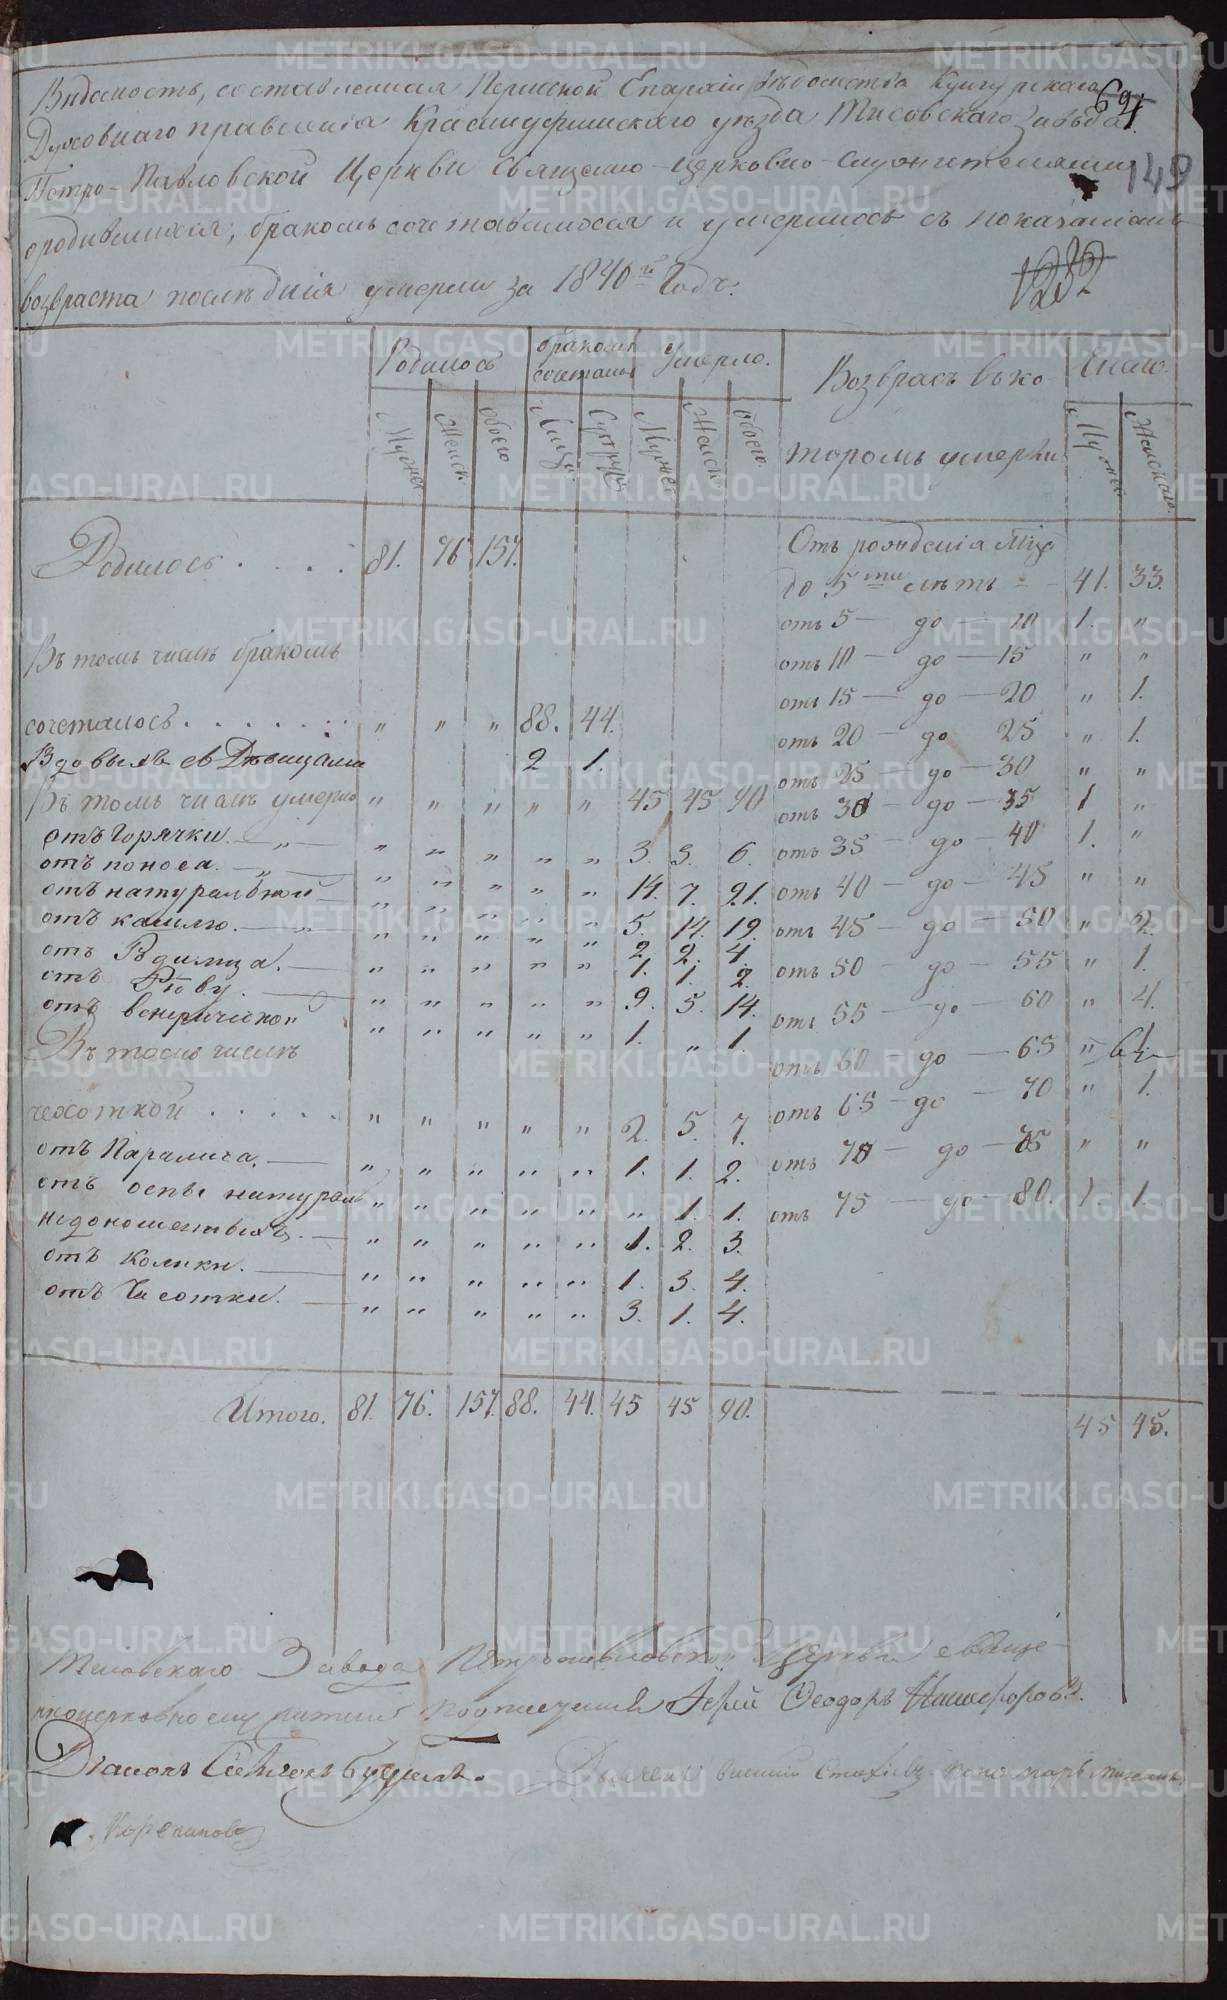 Видомость, составленная Пермской Епархіи вѣдомства Кунгурскаго
69
Духовнаго правленія Красноуфимскаго уѣзда Тисовскаго Завода
Петро-Павловской Церкви Священно-церковно-служителями
149
ородившихся, бракомъ сочетавшихся и умершихъ съ показаніемъ
возраста послѣднія умерли за 1840й Годъ.
1282
Родилось
бракомъ сочетаныхъ
Умерло.
Возврасъ въ ко-
тором умерли
Число.
Мужес. Женск. обоего Лицъ. Супруж. Мужес Женск. обоего Мужес Женскаго.
Родилось . . . . 81. 76 157.
Отъ рожденія
до 5ти лѣтъ 41. 33.
отъ 5 — до — 10 1. "
Въ томъ числѣ бракомъ
отъ 10 — до — 15 " "
отъ 15 — до — 20 " 1.
сочеталось . . . . . . . " " " 88. 44.
отъ 20 — до 25 " 1.
Вдовыхъ съ Дѣвицами 2 1.
отъ 25 — до — 30 " "
Въ томъ числѣ умерло " " " " " 45 45 90
отъ 30 — до — 35 1 "
отъ Горячки. — " — " " " " " 3. 3. 6.
отъ 35 — до — 40 1. "
отъ поноса. — " — " " " " " 14. 7. 21.
отъ 40 — до — 45 " "
отъ натуральной " " " " " 5. 14. 19.
отъ 45 — до — 50 " 2.
отъ кашлю. — " " " " " 2 2. 4.
отъ Рдимца. — " " " " " 1. 1. 2.
отъ 50 — до — 55 " 1.
отъ Рѣву. — " " " " " 9. 5. 14.
отъ 55 — до — 60 " 4.
отъ венерической " " " " " 1. " 1.
Въ томъ числѣ
отъ 60 — до — 65 "
отъ 65 — до — 70 " 1.
чехоткой . . . . . " " " " " 2. 5. 7.
отъ 70 — до — 75 " "
отъ Паралича. — " " " " " 1. 1. 2.
отъ оспы натурал " " " " " " 1. 1.
отъ 75 — до — 80. 1. 1.
недоношенныхъ. — " " " " " 1. 2. 3.
отъ Колики. — " " " " " 1. 3. 4.
отъ Чесотки. — " " " " " 3. 1. 4.
Итого. 81. 76. 157. 88. 44. 45 45 90. 45 45.
Тисовскаго Завода Петропавловской Церкви свяще-
нноцерковнослужители Подписуемся Іерей Ѳеодоръ Никифоровъ.
Діаконъ Симеонъ
Дьячекъ Пономарь
Корепановъ